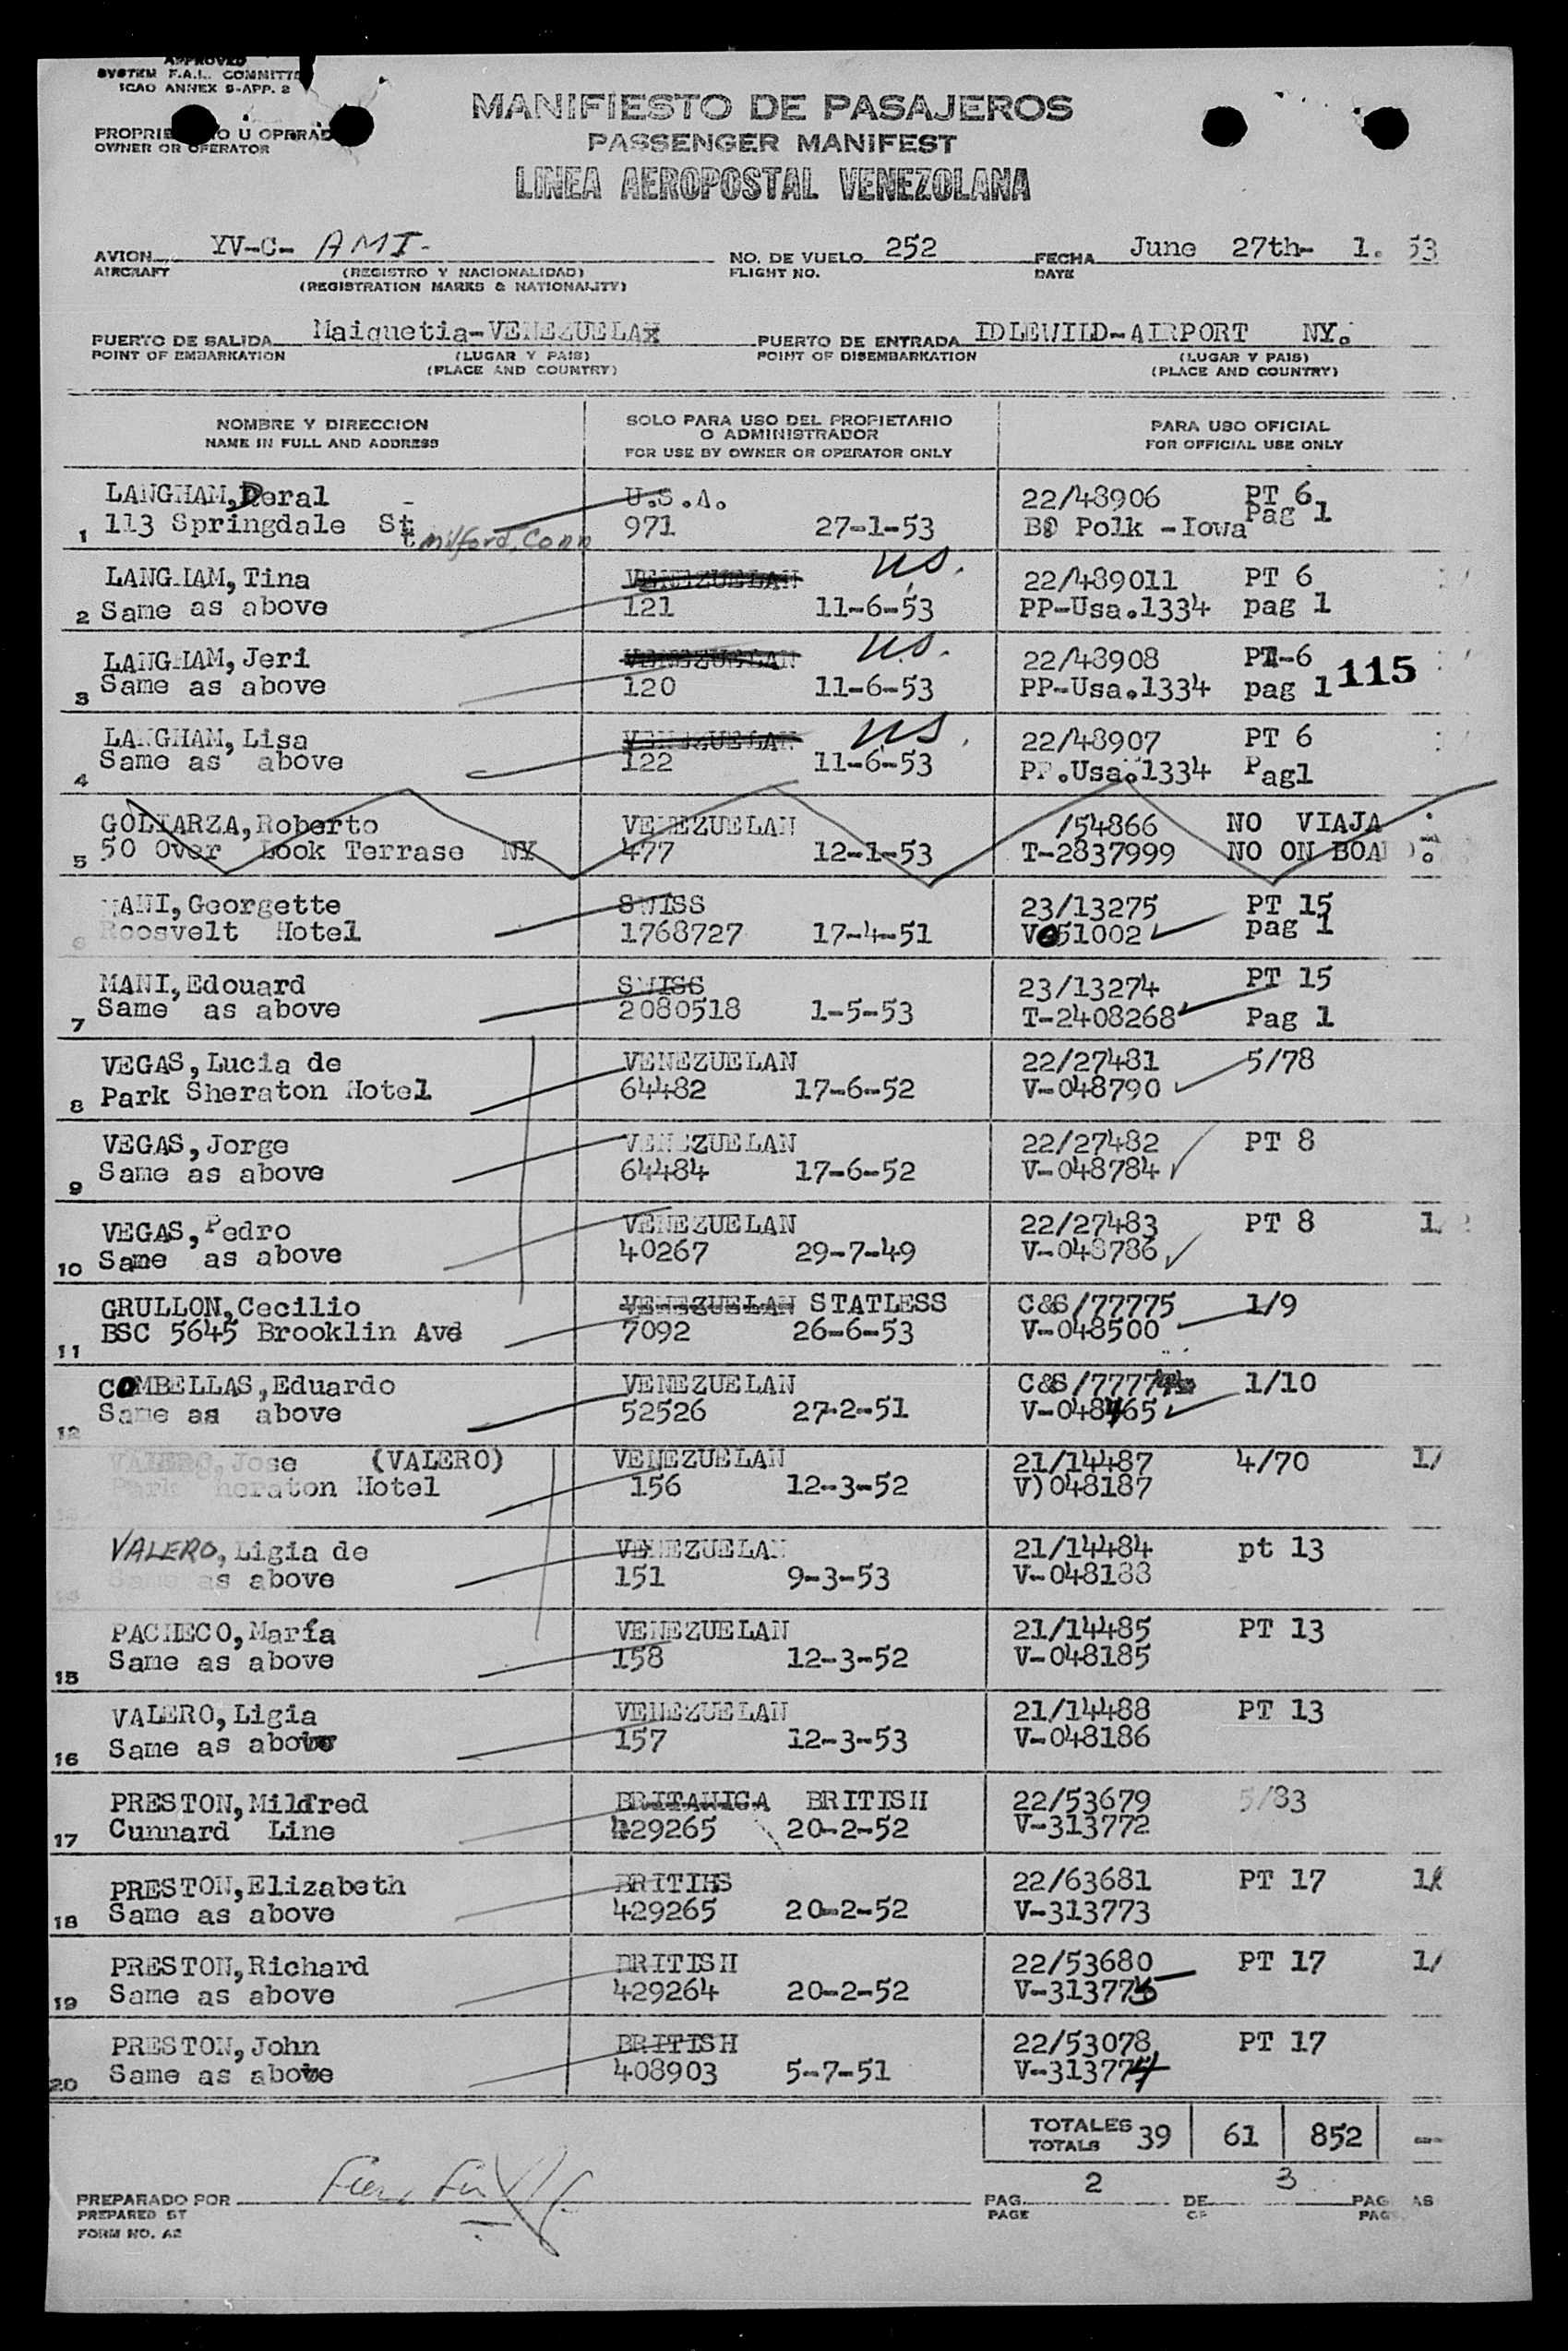 APPROVED
SYSTEM F.A.L. COMMITTE
ICAO ANNEX 9-APP. 2
MANIFIESTO DE PASAJEROS
PASSENGER MANIFEST
LINEA AEROPOSTAL VENEZOLANA
OWNER OR OPERATOR
AVION YV-C- AMI- NO. DE VUELO 252 FECHA June 27th- 1. 53
AIRCRAFT (REGISTRO Y NACIONALIDAD) FLIGHT NO. DATE
(REGISTRATION MARKS & NATIONALITY)
PUERTO DE SALIDA Maiquetia-VENEZUELA PUERTO DE ENTRADA IDLEWILD-AIRPORT NY.
POINT OF EMBARKATION (LUGAR Y PAIS) POINT OF DISEMBARKATION (LUGAR Y PAIS)
(PLACE AND COUNTRY) (PLACE AND COUNTRY)
NOMBRE Y DIRECCION SOLO PARA USO DEL PROPIETARIO PARA USO OFICIAL
NAME IN FULL AND ADDRESS O ADMINISTRADOR FOR OFFICIAL USE ONLY
FOR USE BY OWNER OR OPERATOR ONLY
LANGHAM, Deral U.S.A. 22/48906 PT 6
1 113 Springdale St Milford, Conn 971 27-1-53 Polk -Iowa Pag 1
LANGHAM, Tina VENEZUELAN US. 22/489011 PT 6
2 Same as above 121 11-6-53 PP-Usa.1334 pag 1
LANGHAM, Jeri VENEZUELAN U.S. 22/48908 PT-6
3 Same as above 120 11-6-53 PP-Usa.1334 pag 1 115
LANGHAM, Lisa VENEZUELAN US. 22/48907 PT 6
4 Same as above 122 11-6-53 PP.Usa.1334 Pag1
GOLIARZA, Roberto VENEZUELAN /54866 NO VIAJA
5 50 Over Look Terrase NY 477 12-1-53 T-2837999 NO ON BOARD
MANI, Georgette SWISS 23/13275 PT 15
6 Roosvelt Hotel 1768727 17-4-51 V051002 pag 1
MANI, Edouard SWISS 23/13274 PT 15
7 Same as above 2080518 1-5-53 T-2408268 Pag 1
VEGAS, Lucia de VENEZUELAN 22/27481 5/78
8 Park Sheraton Hotel 64482 17-6-52 V-048790
VEGAS, Jorge VENEZUELAN 22/27482 PT 8
9 Same as above 64484 17-6-52 V-048784
VEGAS, Pedro VENEZUELAN 22/27483 PT 8
10 Same as above 40267 29-7-49 V-048786
GRULLON, Cecilio VENEZUELAN STATLESS C&S/77775 1/9
11 BSC 5645 Brooklin Ave 7092 26-6-53 V-048500
COMBELLAS, Eduardo VENEZUELAN 1/10
12 Same as above 52526 27-2-51 V-048465
VALERO, Jose (VALERO) VENEZUELAN 21/14487 4/70 1/
Park Sheraton Hotel 156 12-3-52 V)048187
VALERO, Ligia de VENEZUELAN 21/14484 pt 13
Same as above 151 9-3-53 V-048188
PACHECO, María VENEZUELAN 21/14485 PT 13
15 Same as above 158 12-3-52 V-048185
VALERO, Ligia VENEZUELAN 21/14488 PT 13
16 Same as above 157 12-3-53 V-048186
PRESTON, Mildred BRITANICA BRITISH 22/53679 5/83
17 Cunnard Line 429265 20-2-52 V-313772
PRESTON, Elizabeth BRITIHS 22/63681 PT 17
18 Same as above 429265 20-2-52 V-313773
PRESTON, Richard BRITISH 22/53680 PT 17 1/
19 Same as above 429264 20-2-52 V-313775
PRESTON, John BRITISH 22/53078 PT 17
20 Same as above 408903 5-7-51 V-313774
TOTALES 39 61 852
TOTALS
PREPARADO POR PAG. 2 DE 3
PREPARED BY PAGE OF
FORM NO. A2